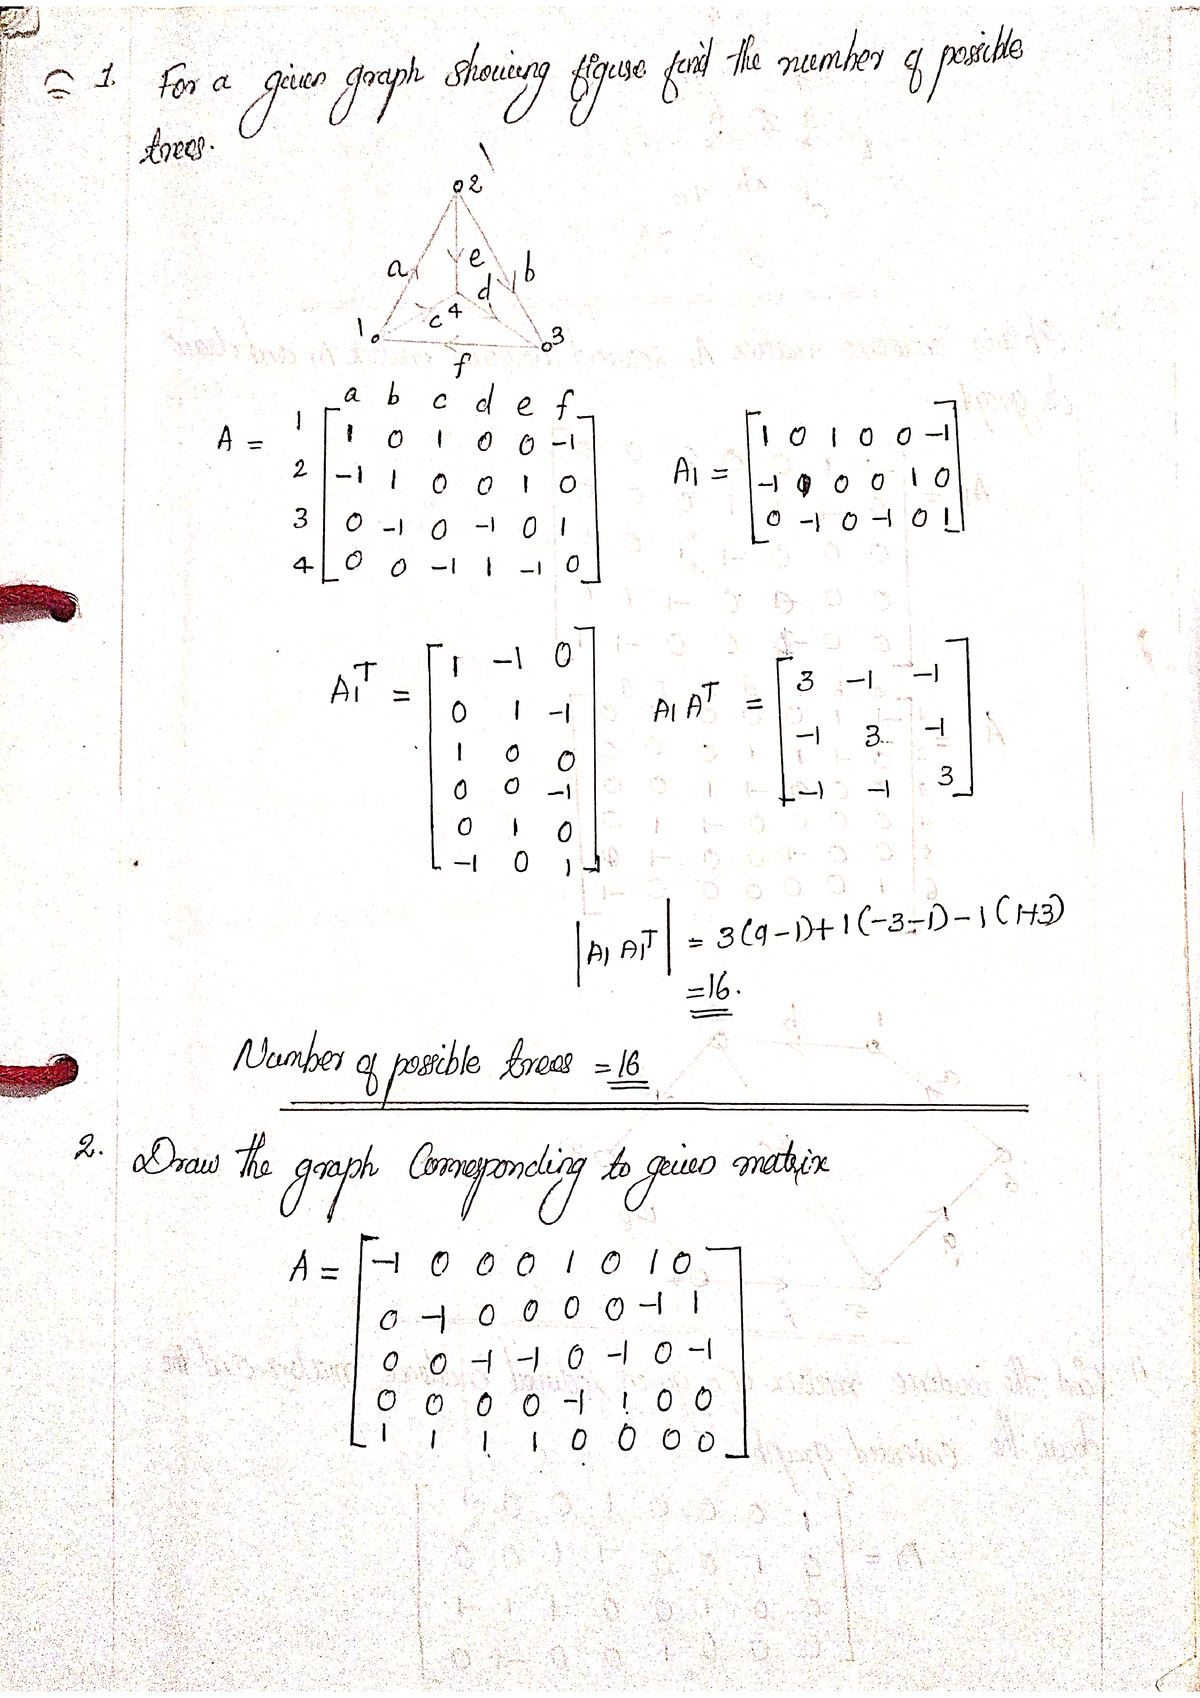 1. For a given graph showing figure find the number of possible
trees.
2
a e b
d
c 4
1 3
f
a b c d e f
A = 1 1 0 1 0 0 -1
2 -1 1 0 0 1 0
3 0 -1 0 -1 0 1
4 0 0 -1 1 -1 0
A1 = 1 0 1 0 0 -1
-1 0 0 0 1 0
0 -1 0 -1 0 1
A1T = 1 -1 0
0 1 -1
1 0 0
0 0 -1
0 1 0
-1 0 1
A1 AT = 3 -1 -1
-1 3 -1
-1 -1 3
|A1 A1T| = 3(9-1)+1(-3-1)-1(1+3)
=16.
Number of possible trees = 16
2. Draw the graph Corresponding to given matrix
A = -1 0 0 0 1 0 1 0
0 -1 0 0 0 0 -1 1
0 0 -1 -1 0 -1 0 -1
0 0 0 0 -1 1 0 0
1 1 1 1 0 0 0 0